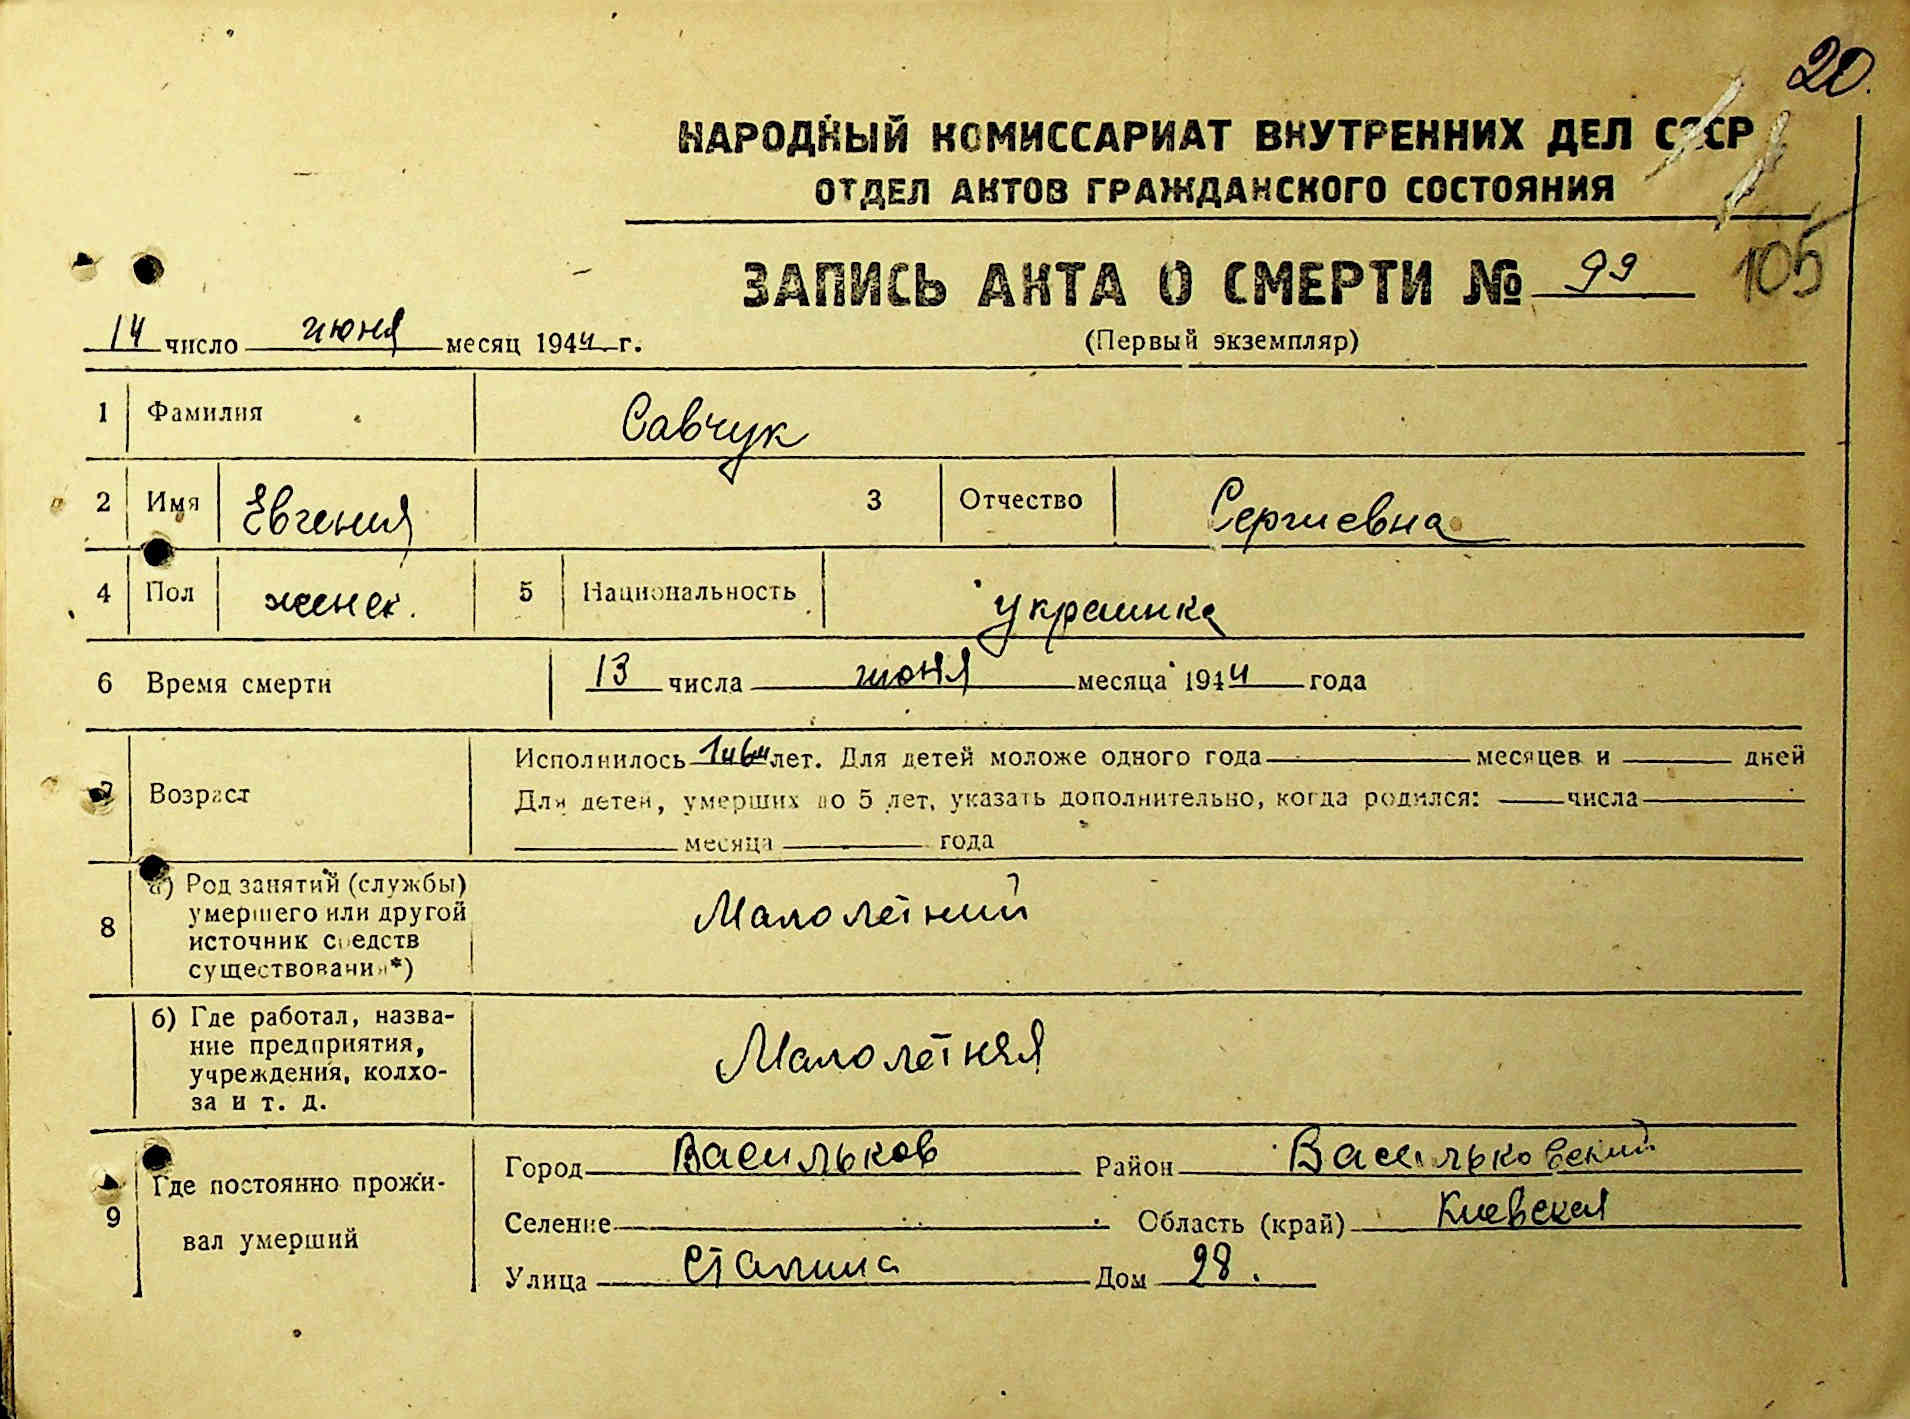 20.
НАРОДНЫЙ КОМИССАРИАТ ВНУТРЕННИХ ДЕЛ СССР
ОТДЕЛ АКТОВ ГРАЖДАНСКОГО СОСТОЯНИЯ
ЗАПИСЬ АКТА О СМЕРТИ № 99
105
14 число июня месяц 1944 г.
(Первый экземпляр)
1 Фамилия Савчук
2 Имя Евгения 3 Отчество Сергиевна
4 Пол женск. 5 Национальность украинка
6 Время смерти 13 числа июня месяца 1944 года
Исполнилось 1 и 6 м лет. Для детей моложе одного года месяцев и дней
7 Возраст
Для детей, умерших до 5 лет, указать дополнительно, когда родился: числа
месяца года
8 а) Род занятий (службы) умершего или другой источник средств существования*) Малолетний
б) Где работал, назва-
ние предприятия,
учреждения, колхо-
за и т. д.
Малолетняя
9 Где постоянно прожи-
вал умерший
Город Васильков Район Васильковский
Селение Область (край) Киевская
Улица Сталина Дом 28.